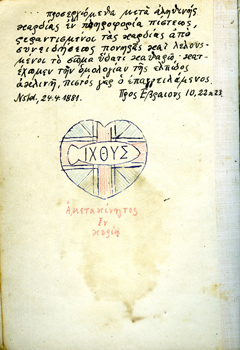 ... προσερχώμεθα μετὰ ἀληθινῆς
καρδίας ἐν πληροφορίᾳ πίστεως,
ῥεραντισμένοι τὰς καρδίας ἀπὸ
συνειδήσεως πονηρᾶς καὶ λελου-
μένοι τὸ σῶμα ὕδατι καθαρῷ· κατ-
έχωμεν τὴν ὁμολογίαν τῆς ἐλπίδος
ἀκλινῆ, πιστὸς γὰρ ὁ ἐπαγγειλάμενος.
24.4.1881. Πρὸς Ἑβραίους 10, 22 23
ΙΧΘΥΣ
Ἀμετακίνητος
ἐν